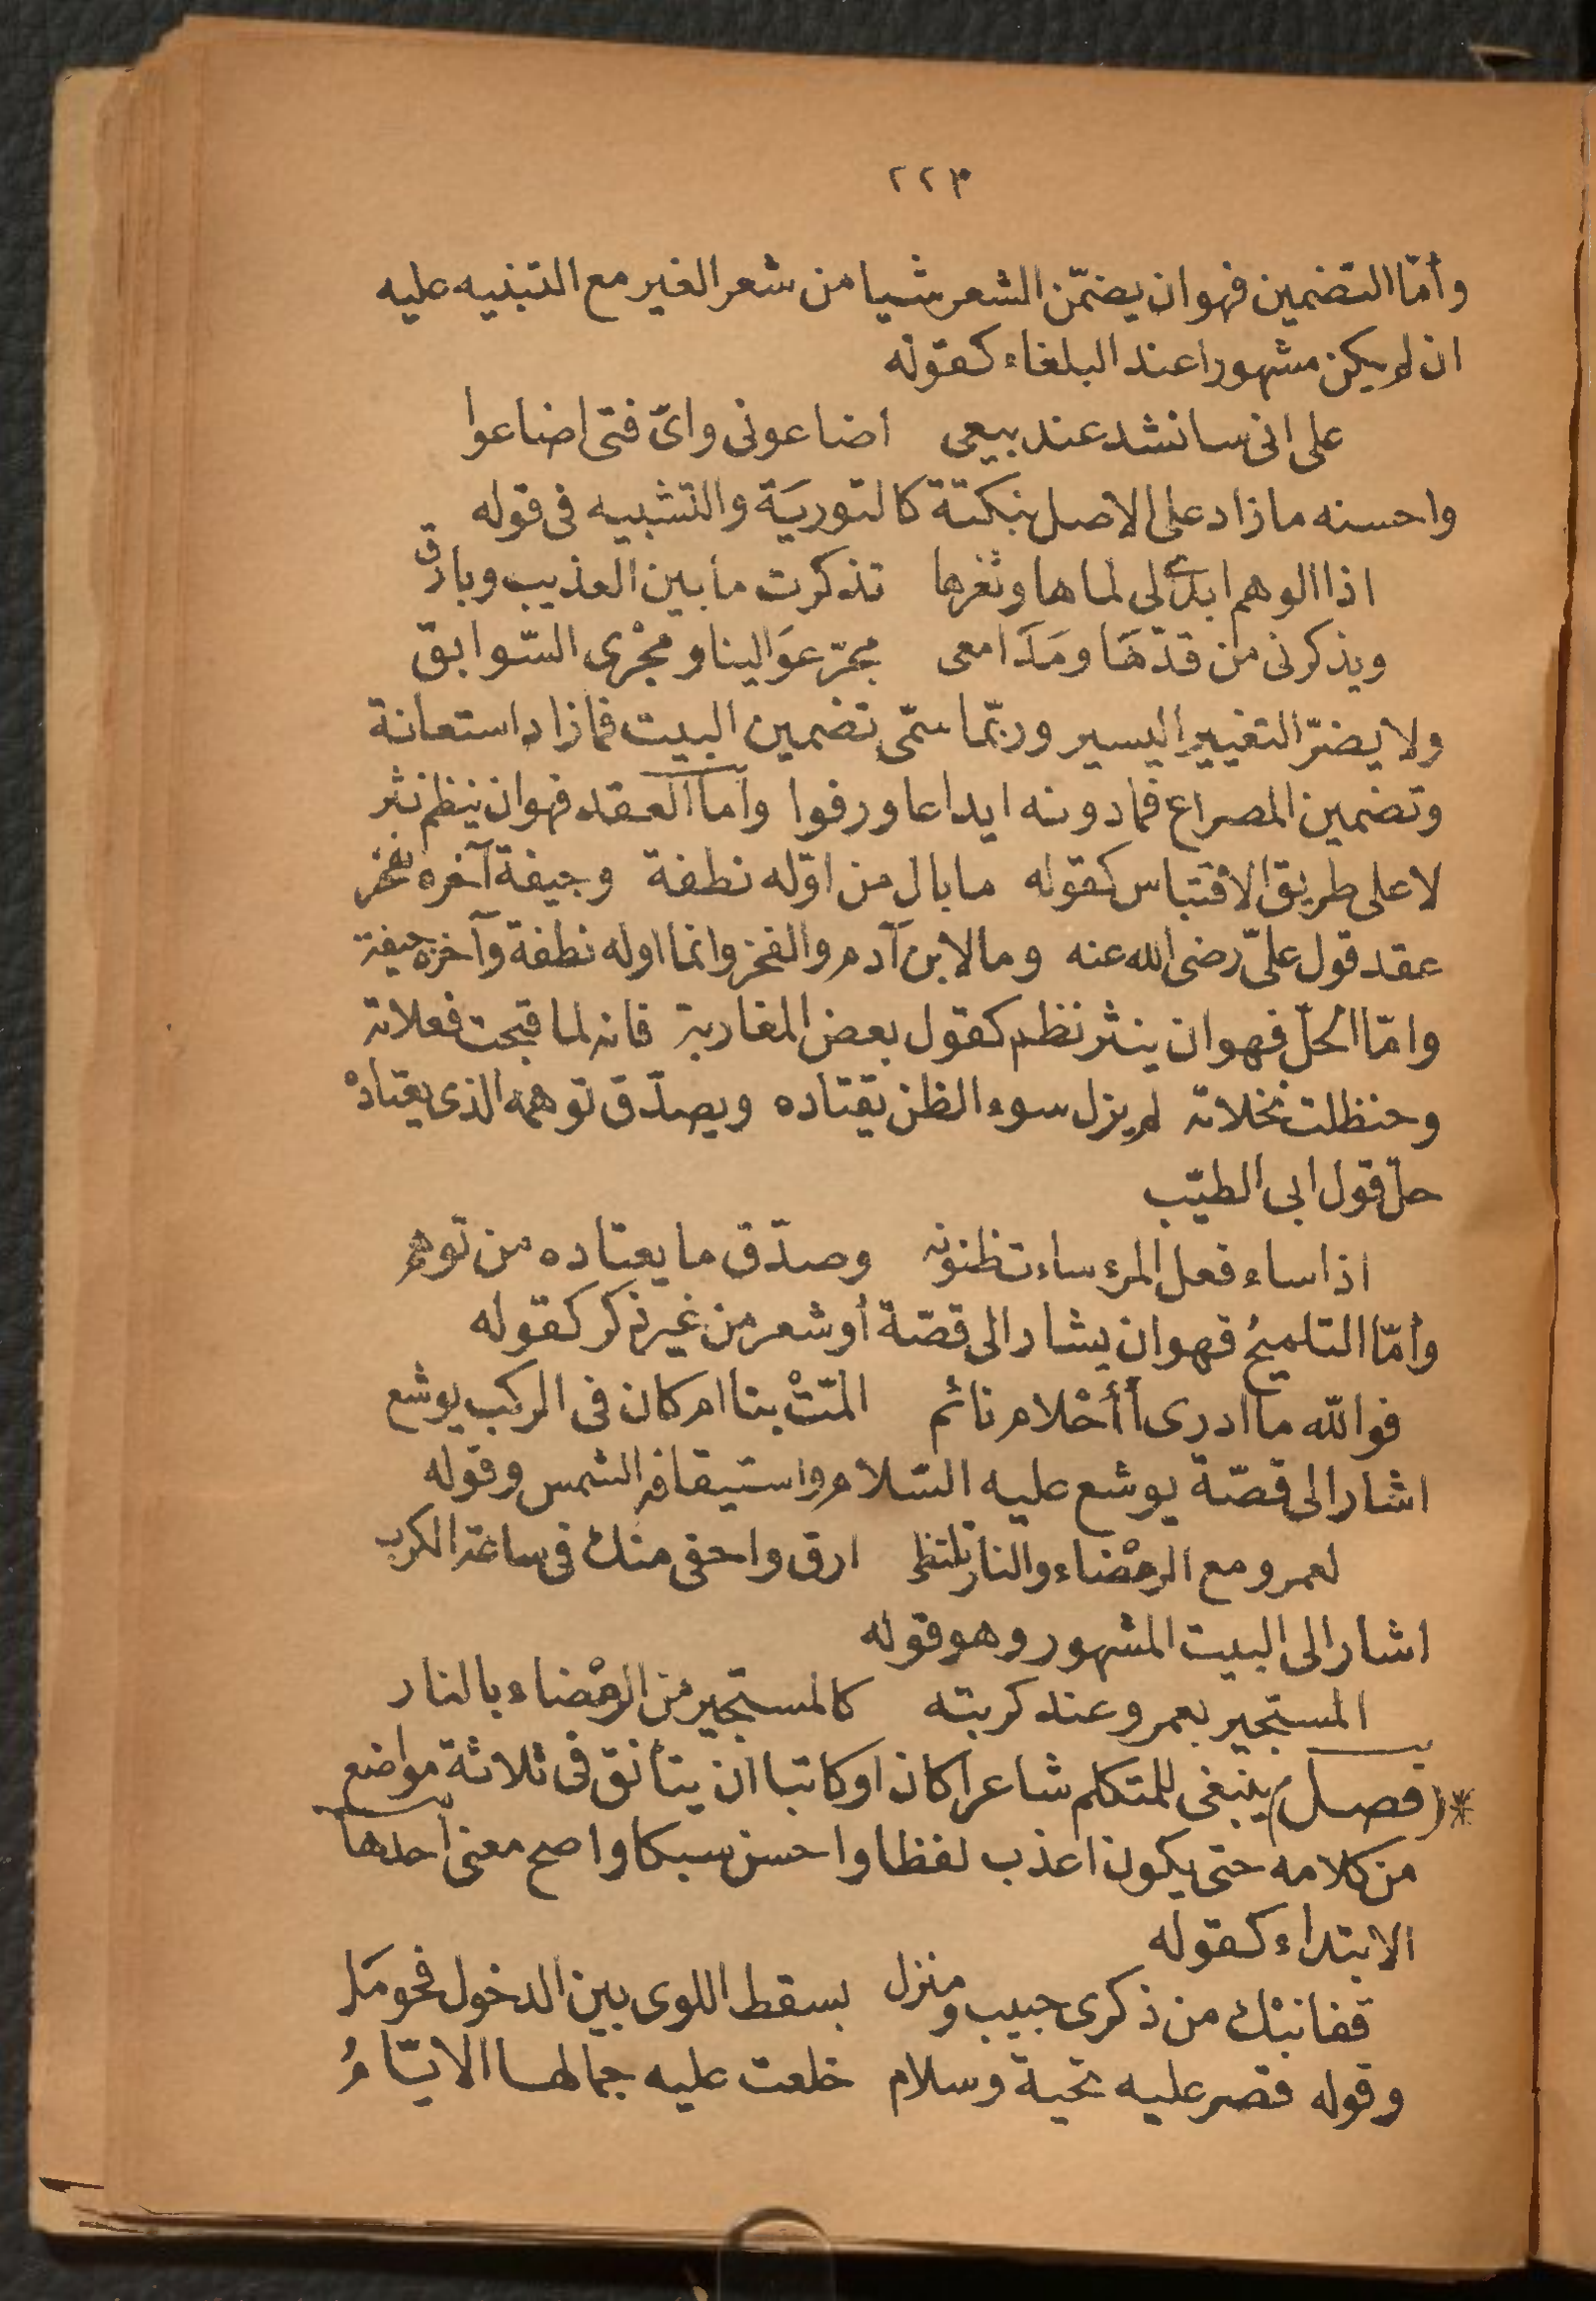 ٢٢٣
وأمّا التضمين فهو ان يضمّن الشعر شيا من شعر الغير مع التبنيه عليه
ان لم يكن مشهورا عند البلغاء كقوله
على انى سانشد عند بيعى اضاعونى واىّ فتى اضاعوا
واحسنه ما زاد على الاصل بنكتة كالتوريَة والتشبيه فى قوله
اذا الوهم ابدى لى لماها وثغرها تذكرت ما بين العذيب وبارق
ويذكرنى من قدّهَا ومَدَامعى مجرّ عوَالينا ومجْرى السّوابق
ولا يضرّ التغيير اليسير وربّما سمّى تضمين البيت فمازاد استعانة
وتضمين المصراع فمادونه ايداعا ورفوا وأما العقد فهو ان ينظم نثر
لا على طريق الاقتباس كقوله ما بال من اوّله نطفة وجيفة آخره يفخر
عقد قول علىّ رضى الله عنه وما لابن آدم والفخر وانما اوله نطفة وآخره جيفة
وامّا الحلّ فهو ان ينثر نظم كقول بعض المغاربة فانه لما قبحت فعلاته
وحنظلت نخلاته لم يزل سوء الظن يقتاده ويصدّق توهمه الذى يعتادهْ
حلّ قول ابى الطيّب
اذا ساء فعل المرء ساءت ظنونه وصدّق ما يعتاده من توهم
وأمّا التلميحُ فهو ان يشار الى قصّة أو شعر من غير ذكر كقوله
فوالله ما ادرى أأحْلام نائم المّتْ بنا ام كان فى الركب يوشع
اشار الى قصّة يوشع عليه السّلام واستيقافه الشمس وقوله
لعمرو مع الرمْضاء والنار تلتظى ارق واحفى منك فى ساعة الكرب
اشار الى البيت المشهور وهو قوله
المستجير بعمرو عند كربته كالمستجير من الرمْضاء بالنار
*(فصل) ينبغى للمتكلم شاعرا كان او كاتبا ان يتأنق فى ثلاثة مواضع
من كلامه حتى يكون اعذب لفظا واحسن سبكا واصح معنى احدها
الابتداء كقوله
قفا نبْك من ذكرى حبيب ومنزل بسقط اللوى بين الدخول فحومَل
وقوله قصر عليه تحية وسلام خلعت عليه جمالها الايّامُ